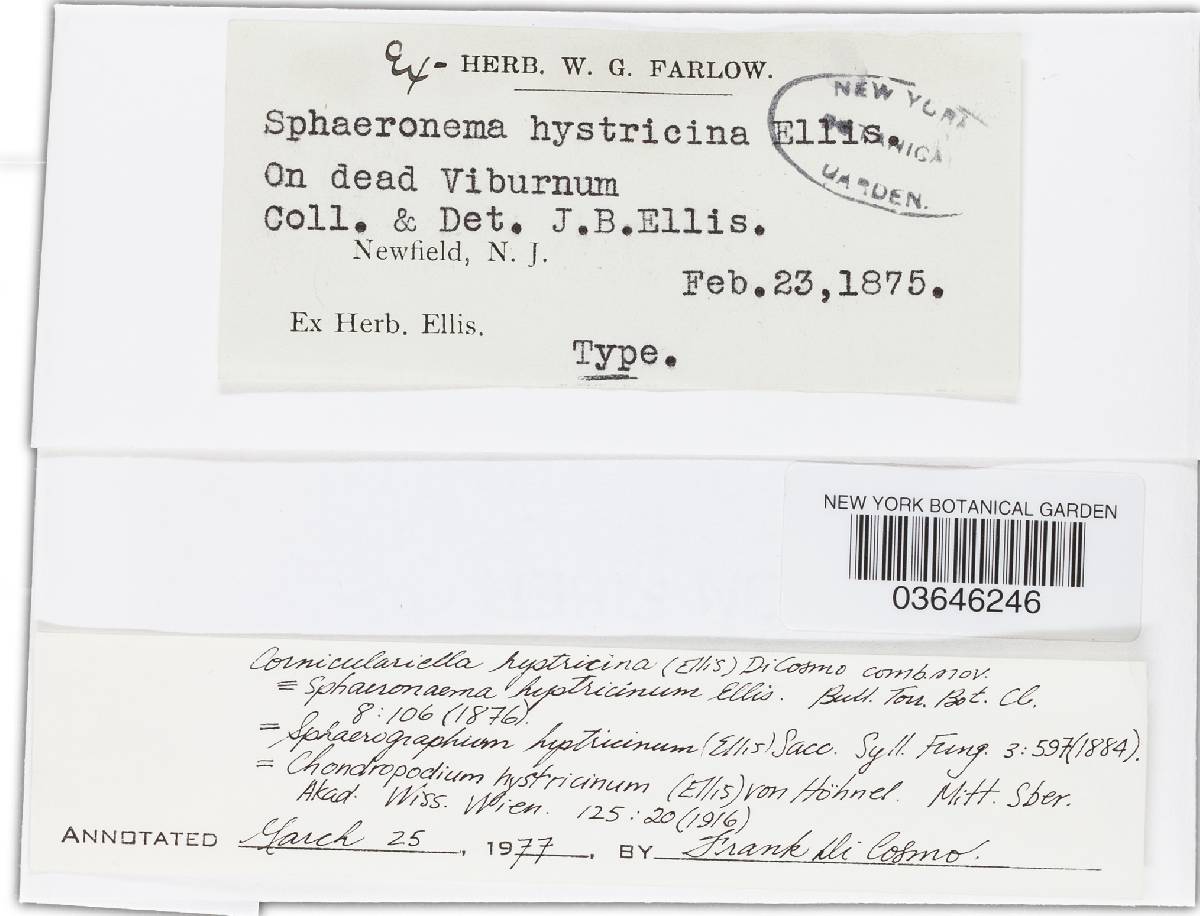 Ex- HERB. W. G. FARLOW.
Sphaeronema hystricina Ellis.
NEW YORK
BOTANICAL
GARDEN.
On dead Viburnum
Coll. & Det. J.B.Ellis.
Newfield, N. J.
Feb.23,1875.
Ex Herb. Ellis.
Type.
NEW YORK BOTANICAL GARDEN
03646246
Corniculariella hystricina (Ellis) DiCosmo comb. nov.
≡ Sphaeronaema hystricinum Ellis. Bull. Torr. Bot. Cl.
8:106 (1876).
= Sphaerographium hystricinum (Ellis) Sacc. Syll. Fung. 3:597(1884).
= Chondropodium hystricinum (Ellis) von Höhnel. Mitt. Sber.
Akad. Wiss. Wien. 125:20 (1916)
ANNOTATED March 25, 1977, BY Frank Di Cosmo.